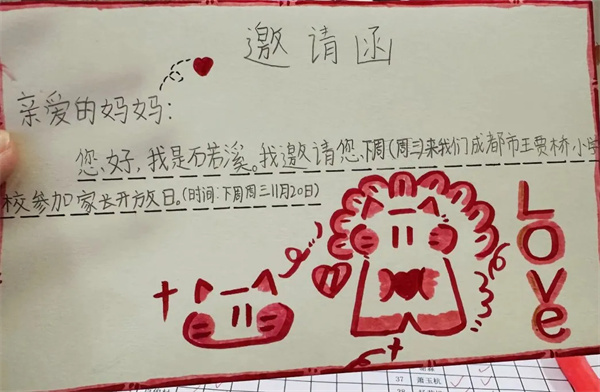 邀请函
亲爱的妈妈:
您好,我是石若溪。我邀请您下周(周三)来我们成都市王贾桥小学
校参加家长开放日。(时间:下周周三11月20日)
LOVE
37 萧玉杭